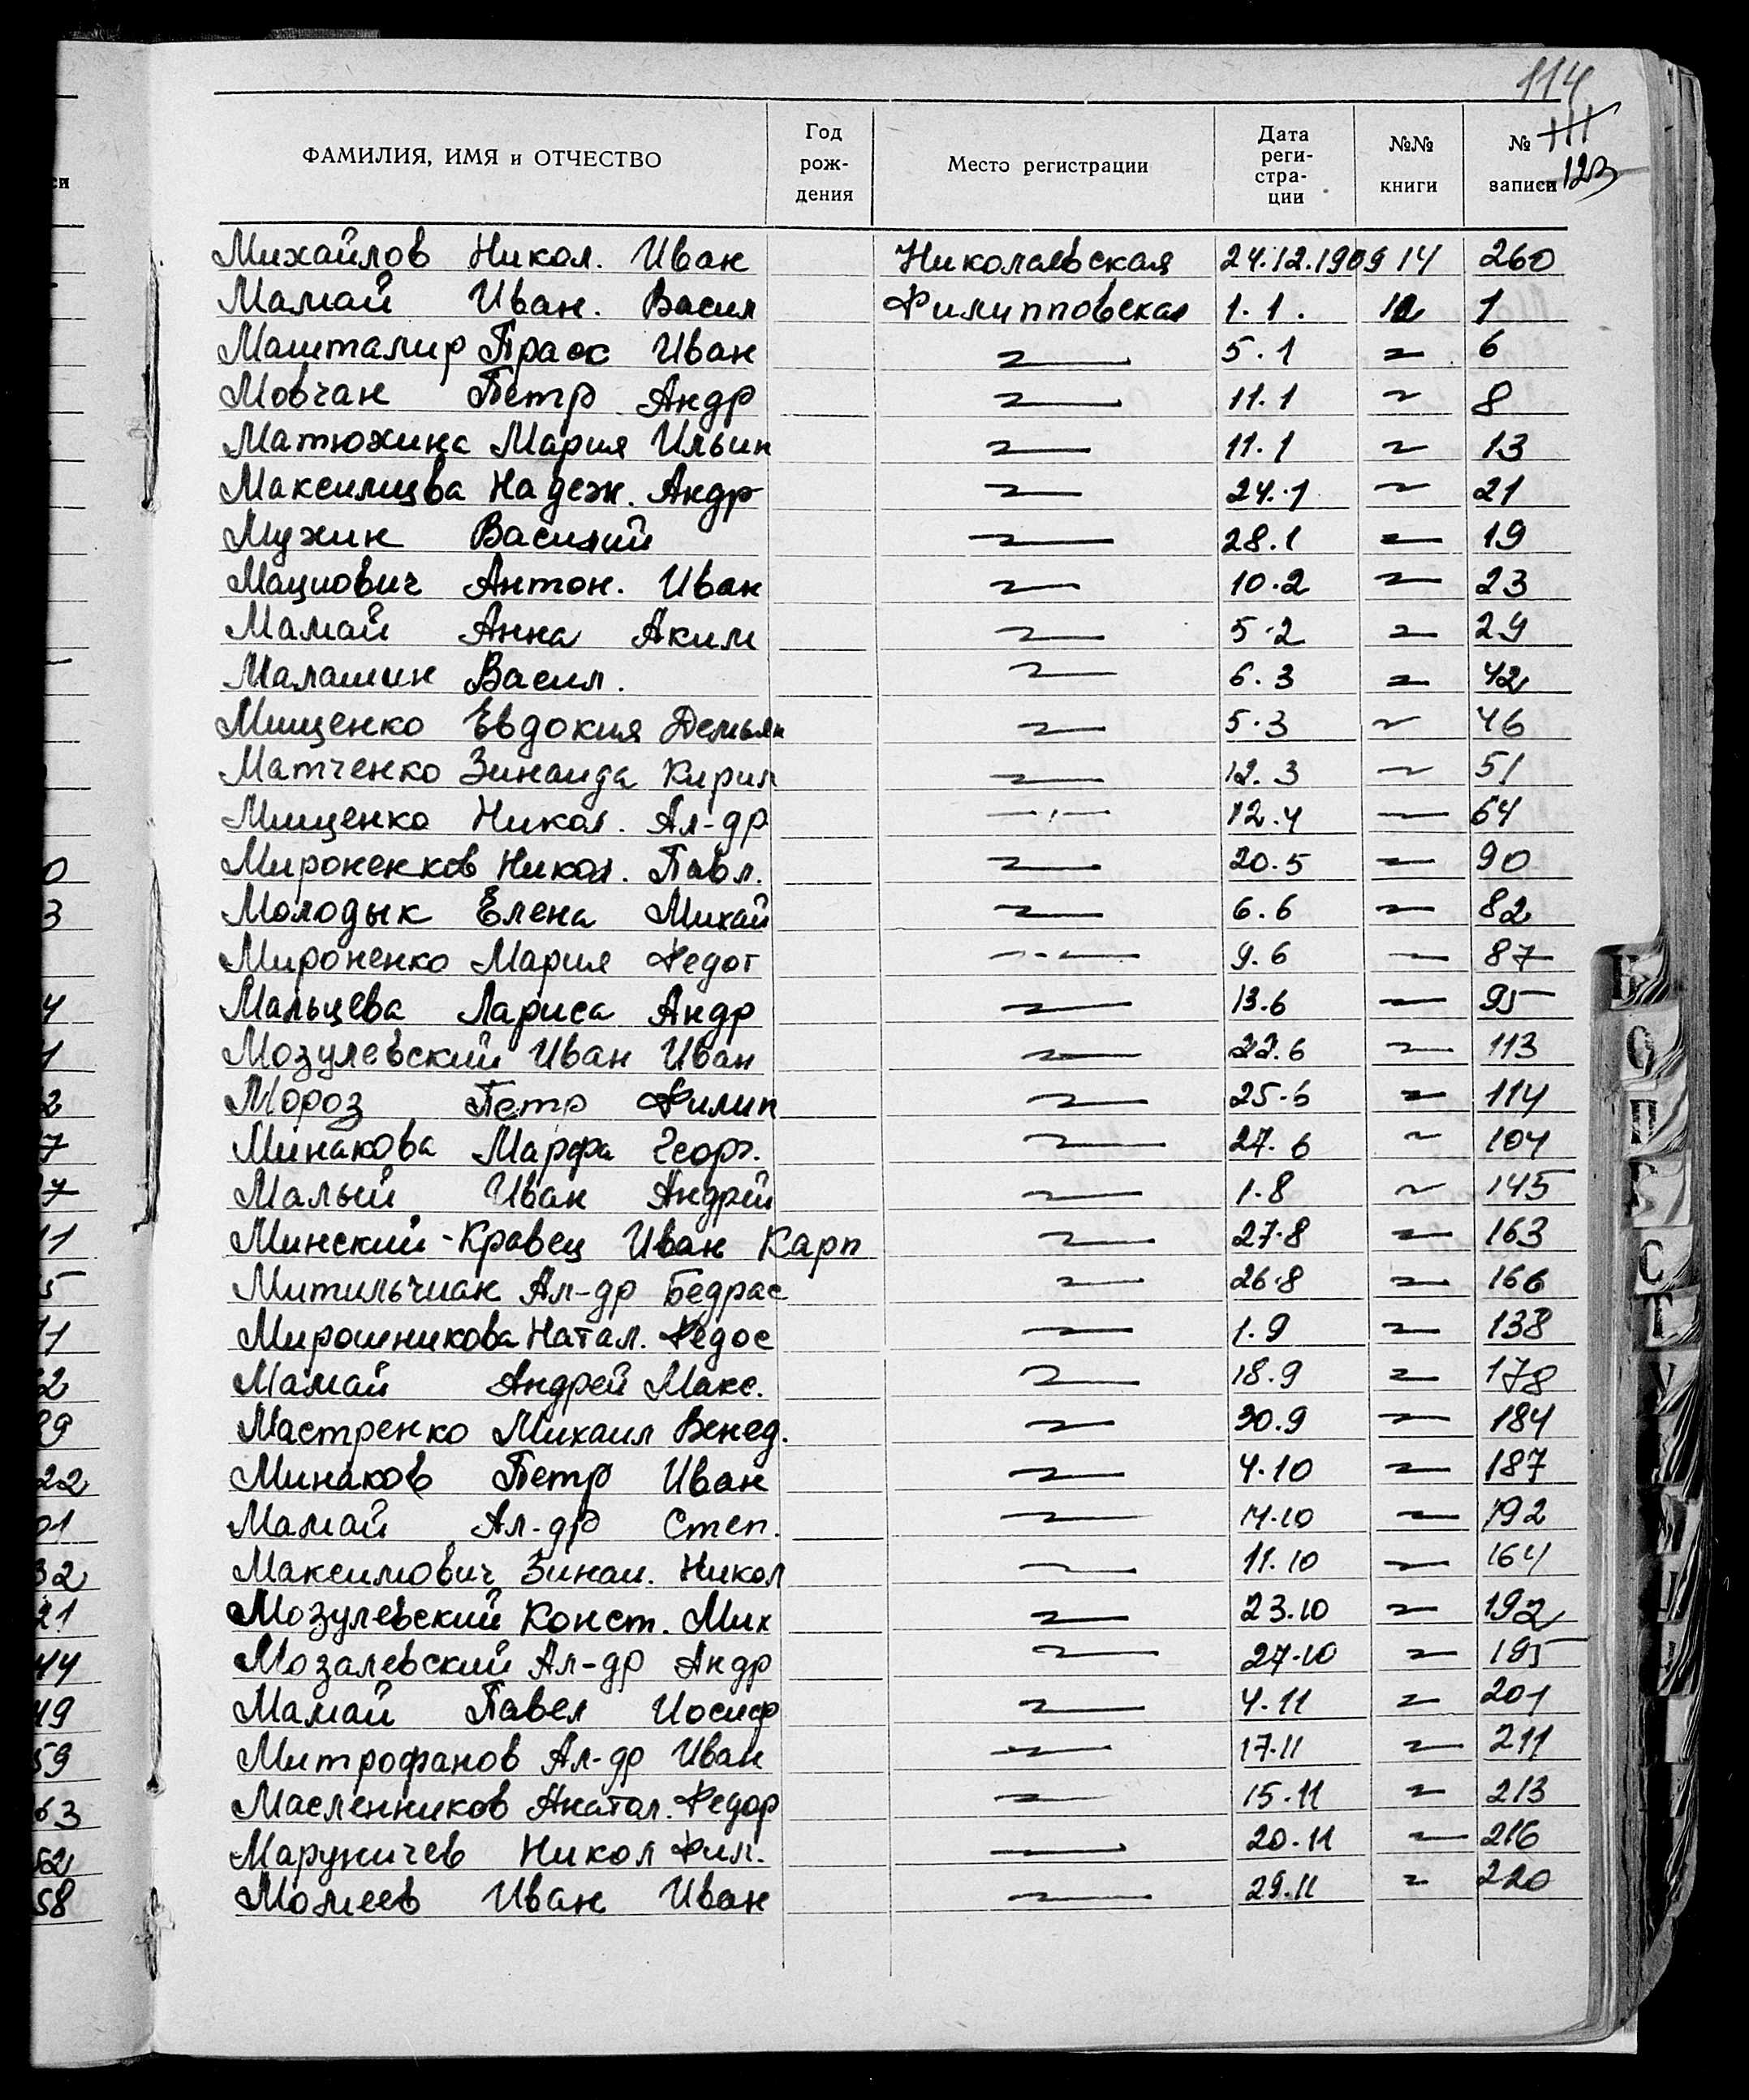 114
111
123
ФАМИЛИЯ, ИМЯ и ОТЧЕСТВО Год рож-дения Место регистрации Дата реги-стра-ции №№ книги № записи
Михайлов Никол. Иван Николаевская 24.12.1909 14 260
Мамай Иван. Васил Филипповская 1.1. 12 1
Машталир Праск Иван 〃 5.1 〃 6
Мовчан Петр Андр 〃 11.1 〃 8
Матюхина Мария Ильин 〃 11.1 〃 13
Максимцва Надеж. Андр 〃 24.1 〃 21
Мухин Василий 〃 28.1 〃 19
Мациович Антон. Иван 〃 10.2 〃 23
Мамай Анна Аким 〃 5.2 〃 29
Малашин Васил. 〃 6.3 〃 42
Мищенко Евдокия Демьян 〃 5.3 〃 46
Матченко Зинаида Кирил 〃 12.3 〃 51
Мищенко Никол. Ал-др 〃 12.4 〃 64
Мироненков Никол. Павл. 〃 20.5 〃 90
Молодык Елена Михай 〃 6.6 〃 82
Мироненко Мария Федот 〃 9.6 〃 87
Мальцева Лариса Андр 〃 13.6 〃 95
Мозулевский Иван Иван 〃 22.6 〃 113
Мороз Петр Филип 〃 25.6 〃 114
Минакова Марфа Георг. 〃 27.6 〃 104
Малый Иван Андрей 〃 1.8 〃 145
Минский-Кравец Иван Карп 〃 27.8 〃 163
Митильчиак Ал-др Бедрас 〃 26.8 〃 166
Мирошникова Натал. Федос 〃 1.9 〃 138
Мамай Андрей Макс. 〃 18.9 〃 178
Мастренко Михаил Венед. 〃 30.9 〃 184
Минаков Петр Иван 〃 4.10 〃 187
Мамай Ал-др Степ. 〃 14.10 〃 192
Максимович Зинаи. Никол 〃 11.10 〃 164
Мозулевский Конст. Мих 〃 23.10 〃 192
Мозалевский Ал-др Андр 〃 27.10 〃 195
Мамай Павел Иосиф 〃 4.11 〃 201
Митрофанов Ал-др Иван 〃 17.11 〃 211
Масленников Анатол. Федор 〃 15.11 〃 213
Маруничев Никол Фил. 〃 20.11 〃 216
Момеев Иван Иван 〃 29.11 〃 220